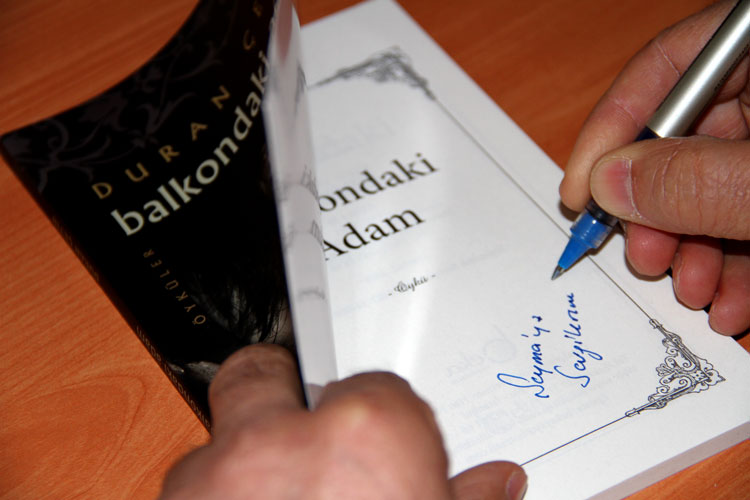 DURAN ÇE
balkondaki
ÖYKÜLER
ondaki
Adam
- Öykü -
Şeyma'ya
Sevgilerimle